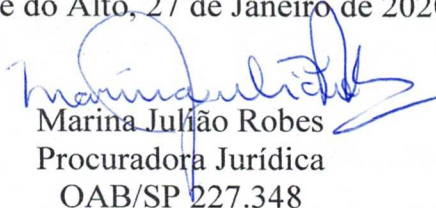 e do Alto, 27 de Janeiro de 2020
Marina Julião Robes
Procuradora Jurídica
OAB/SP 227.348